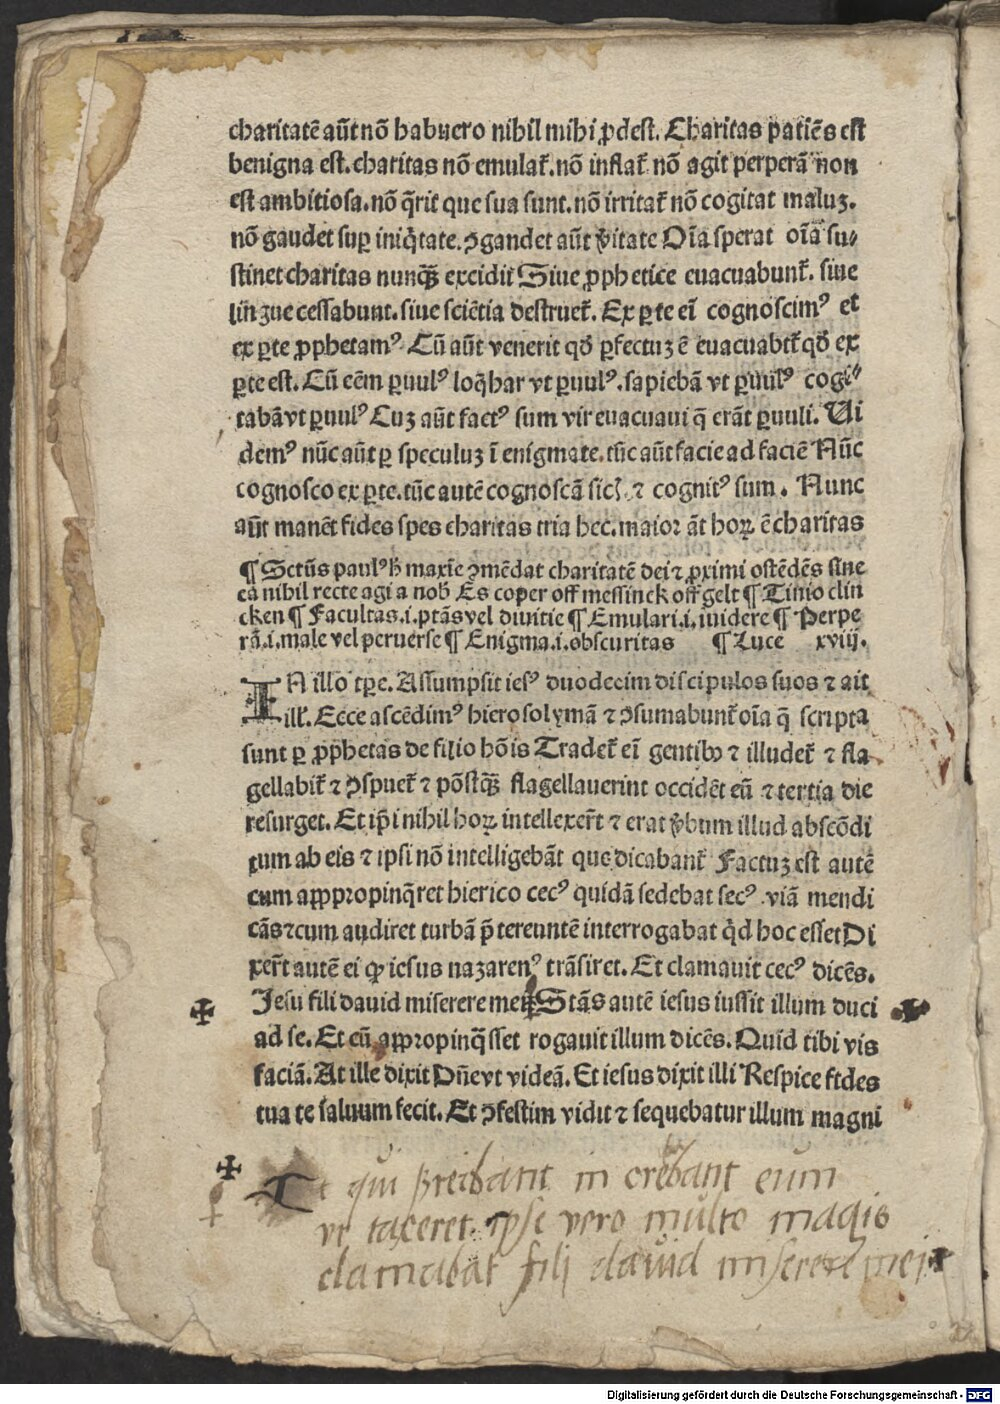 charitatē aūt nō habuero nihil mihi ꝓdest. Charitas patiēs est
benigna est. charitas nō emulat̄. nō inflat̄ nō agit perperā non
est ambitiosa. nō q̄rit que sua sunt. nō irritat̄ nō cogitat maluꝫ.
nō gaudet suꝑ iniq̇tate. ꝯgandet aūt v̄itate Oīa sperat oīa su⸗
stinet charitas nunqꝫ̄ excidit Siue ꝓphetice euacuabunt̄. siue
lingue cessabunt. siue sciētia destruet̄. Ex ꝑte eī cognoscimꝰ et
ex ꝑte ꝓphetamꝰ Cū aūt venerit qd̄ ꝑfectuꝫ ē euacuabit̄ qd̄ ex
ꝑte est. Cū eēm ꝑuulꝰ loq̄bar vt ꝑuulꝰ. sapiebā vt ꝑuulꝰ cogi⸗
tabā vt ꝑuulꝰ Cuꝫ aūt factꝰ sum vir euacuaui q̄ erāt ꝑuuli. Ui
demꝰ nūc aūt ꝑ speculuꝫ ī enigmate. tūc aūt facie ad faciē Nūc
cognosco ex ꝑte. tūc autē cognoscā sicł ⁊ cognitꝰ sum. Nunc
aūt manēt fides spes charitas tria hec. maior āt hoꝝ ē charitas
¶ Sctūs paulꝰ h̄ maxīe ꝯmēdat charitatē dei ⁊ ꝓximi ostēdēs sine
ea nihil recte agi a nob̄ Es coper off messinck off gelt ¶ Tinio clin
cken ¶ Facultas .i. ptās vel diuitie ¶ Emulari .i. iuidere ¶ Perpe
rā .i. male vel peruerse ¶ Enigma .i. obscuritas ¶ Luce xviij.
IN illo tꝑe. Assumpsit iesꝰ duodecim discipulos suos ⁊ ait
ill̄. Ecce ascēdimꝰ hierosolymā ⁊ ꝯsumabunt̄ oīa q̄ scripta
sunt ꝑ ꝓphetas de filio hōis Tradet̄ eī gentibꝰ ⁊ illudet̄ ⁊ fla
gellabit̄ ⁊ ꝯspuet̄ ⁊ pōstqꝫ̄ flagellauerint occidēt eū ⁊ tertia die
resurget. Et ip̄i nihil hoꝝ intellexer̄t ⁊ erat v̄bum illud abscōdi
tum ab eis ⁊ ipsi nō intelligebāt que dicabant̄ Factuꝫ est autē
cum appropinq̄ret hierico cecꝰ quidā sedebat secꝰ viā mendi
cās ⁊ cum audiret turbā p̄tereuntē interrogabat q̇d hoc esset Di
xer̄t autē ei ꝙ iesus nazarenꝰ trāsiret. Et clamauit cecꝰ dicēs.
Jesu fili dauid miserere mei Stās autē iesus iussit illum duci
ad se. Et cū appropinq̄sset rogauit illum dicēs. Quid tibi vis
faciā. At ille dixit Dn̄e vt videā. Et iesus dixit illi Respice fides
tua te saluum fecit. Et ꝯfestim vidit ⁊ sequebatur illum magni
Et qui p̄reibant in crebant eum
vt taceret ipse vero multo magis
clamabat fili dauid miserere mei
Digitalisierung gefördert durch die Deutsche Forschungsgemeinschaft - DFG